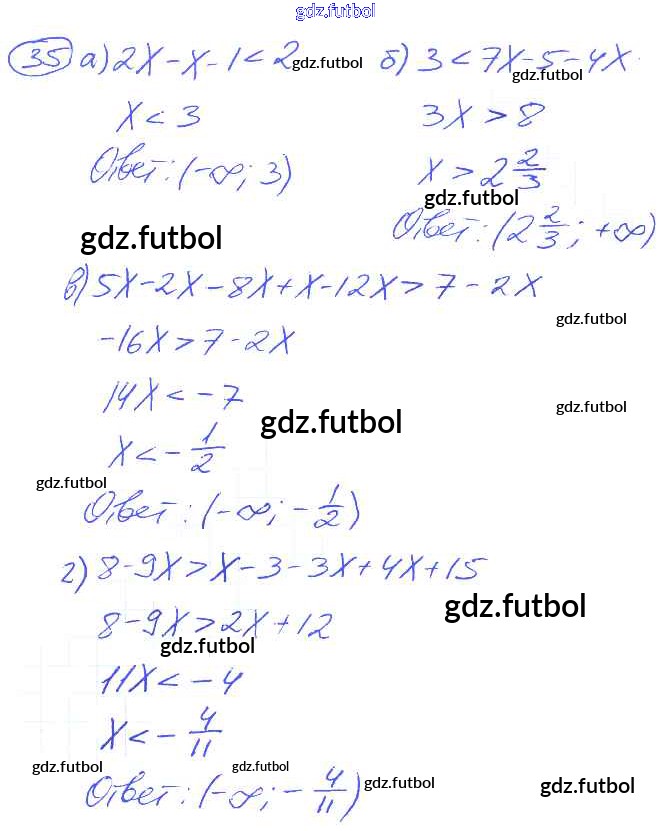 gdz.futbol
35 а) 2x-x-1<2 gdz.futbol б) 3<7x-5-4x
gdz.futbol
x<3 3x>8
Ответ: (-∞; 3) x>2 2/3
gdz.futbol
gdz.futbol Ответ: (2 2/3; +∞)
в) 5x-2x-8x+x-12x>7-2x
gdz.futbol
-16x>7-2x
14x<-7 gdz.futbol
gdz.futbol
x<-1/2
gdz.futbol
Ответ: (-∞; -1/2)
г) 8-9x>x-3-3x+4x+15
gdz.futbol
8-9x>2x+12
gdz.futbol
11x<-4
x<-4/11
gdz.futbol gdz.futbol
Ответ: (-∞; -4/11) gdz.futbol gdz.futbol